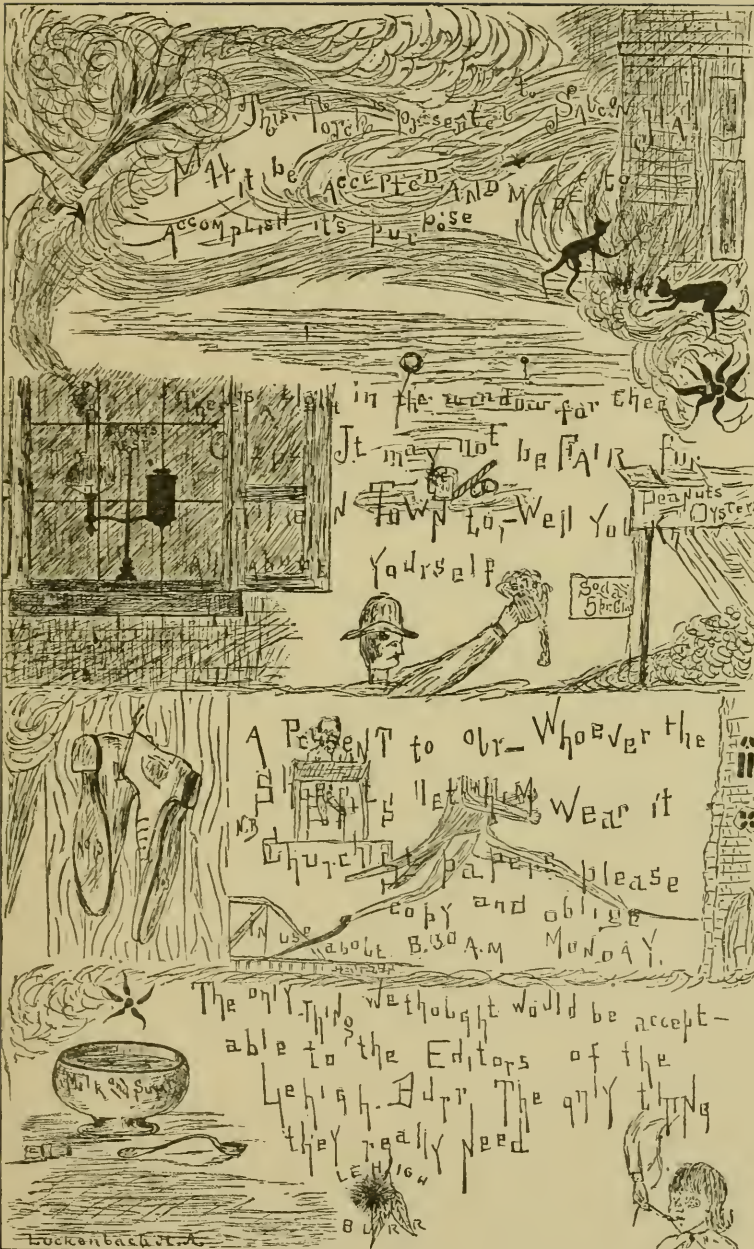 This Torch is presented to Saucon Hall
May it be Accepted AND MADE to
ACCOMPLISH it's purpose
There's a light in the window for thee
It may not be FAIR for
TOWN to,—Well You
Yourself
PeaNuts
Oysters
Soda
5 pr. Gla
A Present to our— Whoever the
let HIM Wear it
N.B
Church papers please
copy and oblige
IN use about 8.30 A.M MONDAY.
The only THING we thought would be accept-
able to the Editors of the
Lehigh. Burr The only thing
they really Need
Milk and Sugar
LEHIGH
BURR
Luckenbach